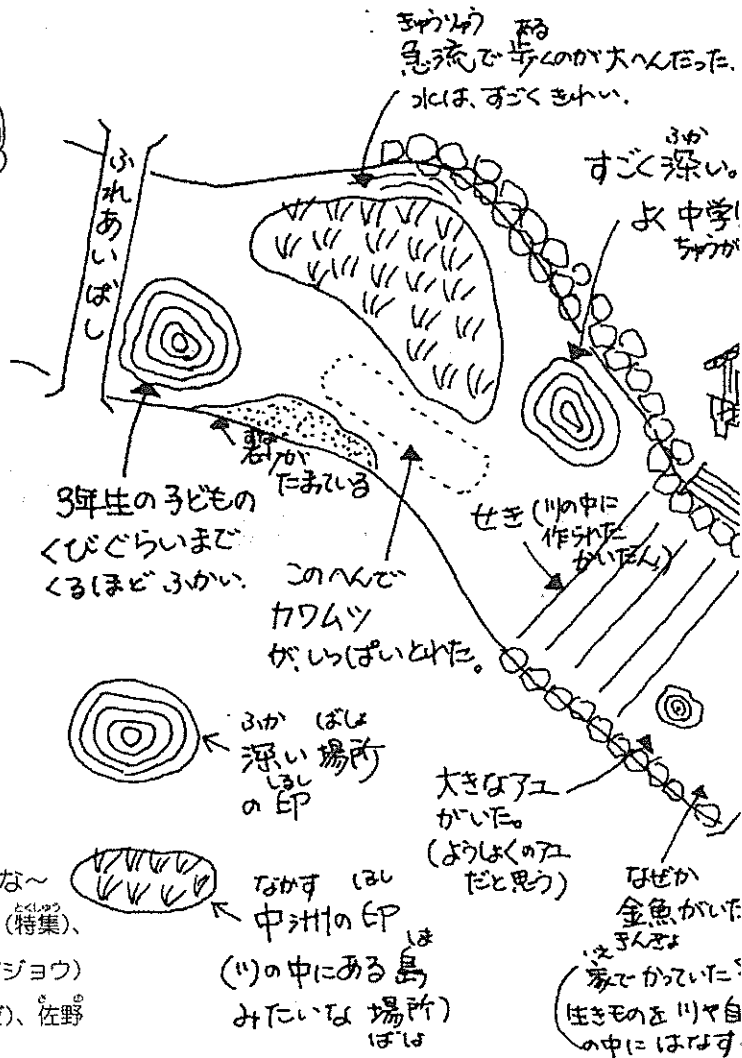 きゅうりゅう ある
急流で歩くのが大へんだった。
水は、すごくきれい。
ふか
すごく深い。
よく中学
ちゅうが
ふれあいばし
砂が
たまっている
3年生の子どもの
くびぐらいまで
くるほどふかい。
このへんで
カワムツ
が、いっぱいとれた。
せき(川の中に
作られた
かいだん)
ふか ばしょ
深い場所
しるし
の印
大きなアユ
がいた。
(ようしょくのアユ
だと思う)
なぜか
金魚がいた
きんぎょ
いえ
家でかっていた
生きものを川や自
の中にはなす
なかす しるし
中洲の印
しま
(川の中にある島
みたいな場所)
ばしょ
な~
とくしゅう
(特集)、
ジョウ)
さの
)、佐野